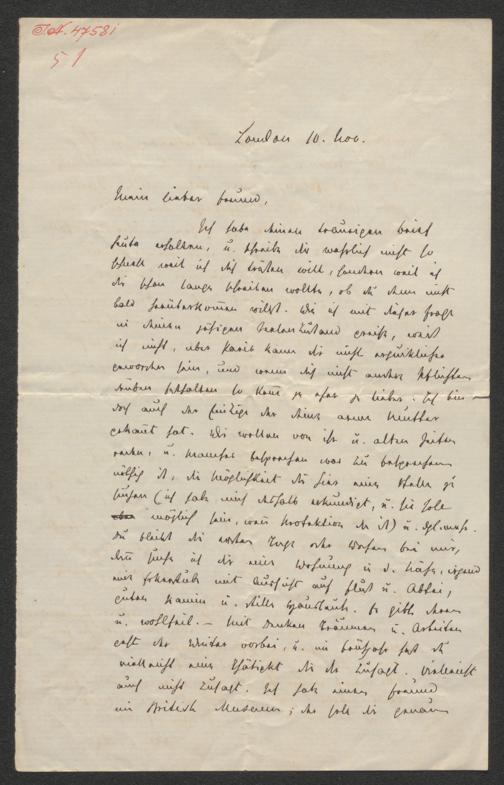 I.N. 47581
51
London 10. Nov.
Mein lieber Freund,
Ich habe deinen traurigen Brief
heute erhalten, u. schreibe dir wahrlich nicht so
schnell weil ich dich trösten will, sondern weil ich
dir schon lange schreiben wollte, ob du denn nicht
bald herüberkommen willst. Wie ich mit dieser Frage
in deinen jetzigen Seelenzustand greife, weiß
ich nicht, aber Paris kann dir nicht erquicklicher
geworden sein, und wenn dich nicht andere Pflichten
drüben behalten so komme je eher je lieber. Ich bin
doch auch der Einzige der deine arme Mutter
gekannt hat. Wir wollen von ihr u. alten Zeiten
reden, u. manches besprechen was zu besprechen
nöthig ist, die Möglichkeit dir hier eine Stelle zu
suchen (ich habe mich deshalb erkundigt, u. sie soll
möglich sein, wenn Protektion da ist) u. dgl. mehr.
Du bleibst die ersten Tage oder Wochen bei mir,
dann suche ich dir eine Wohnung in d. Nähe, irgend
eine Erkerstube mit Aussicht auf Fluß u. Abtei,
guten Kamin u. stiller Hausfrau. Es gibt deren
u. wohlfeil. – Mit Denken Träumen u. Arbeiten
geht der Winter vorbei, u. im Frühjahr hast du
vielleicht eine Thätigkeit die dir zusagt. Vielleicht
auch nicht zusagt. Ich habe einen Freund
im British Museum; der soll dir genau